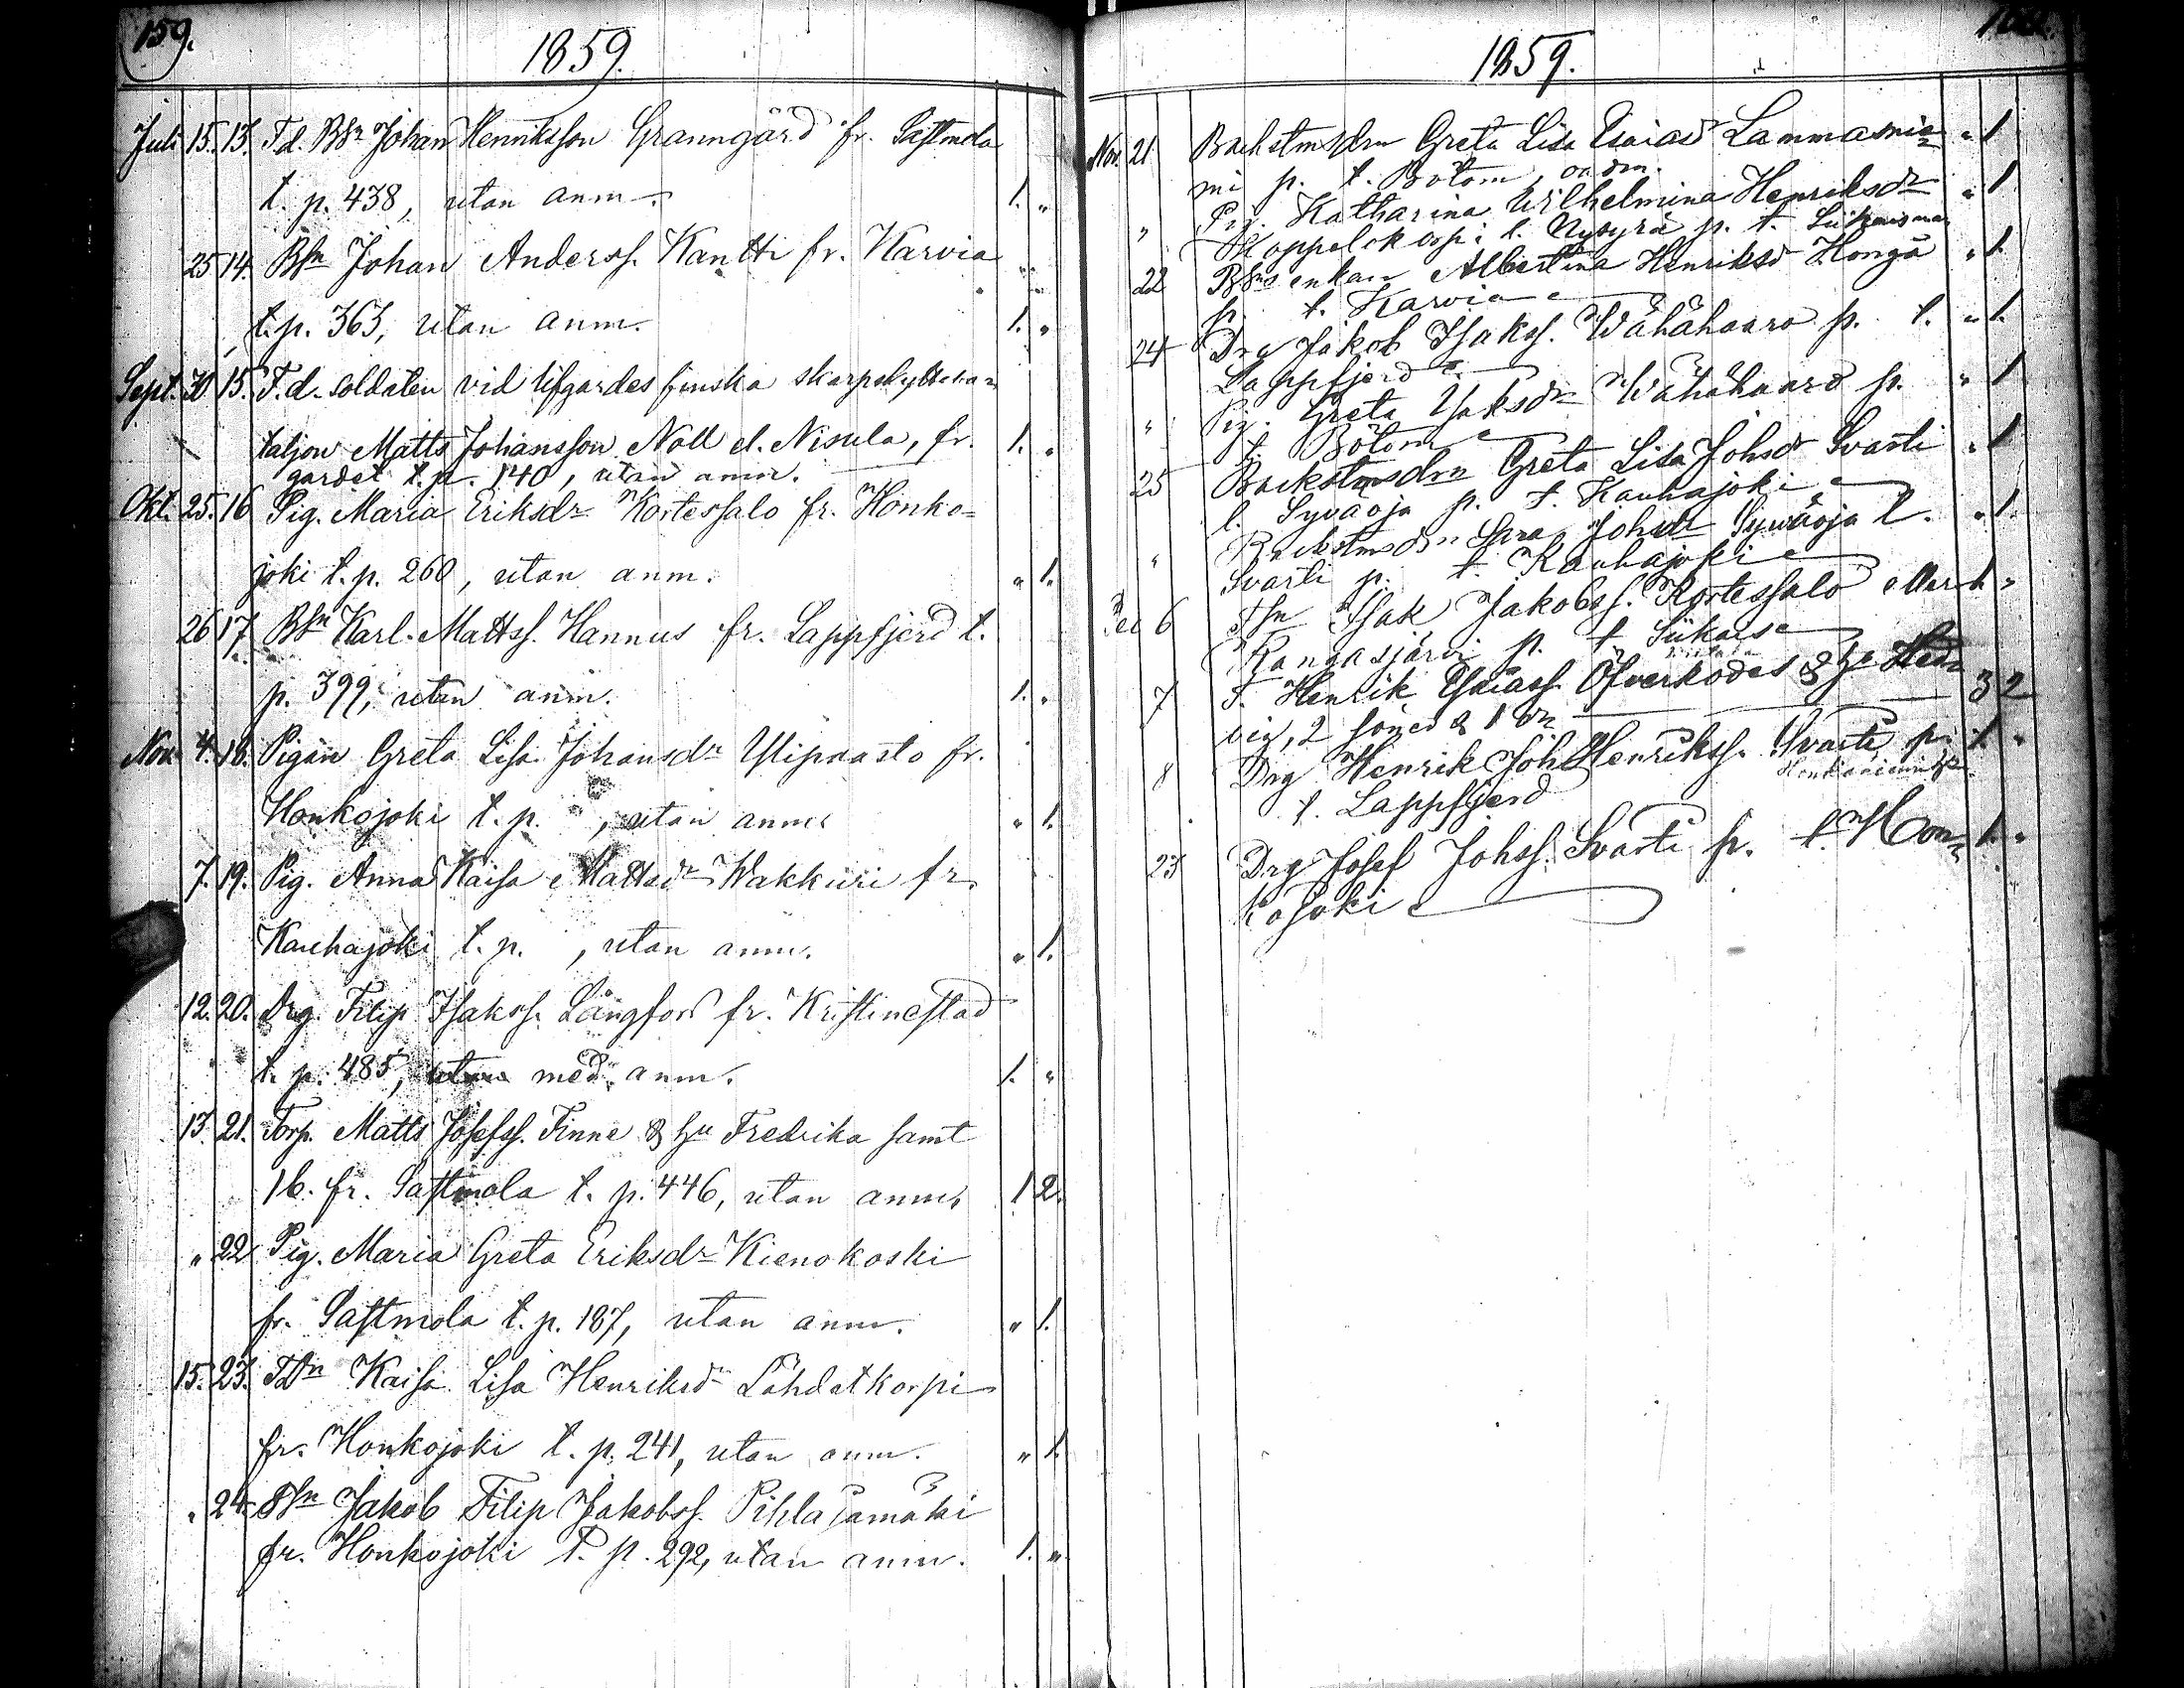 159.
1859.
Juli 15. 13. F.d. Bsn Johan Henriksson Granngård fr. Sastmola
t. p. 438, utan anm. 1. "
25 14. Bsn Johan Anderss. Kantti fr. Karvia
t. p. 363, utan anm. 1. "
Sept. 30 15. F.d. soldaten vid lifgardes finska skarpskytteba=
taljon Matts Johansson Noll el. Nisula, fr. 1. "
gardet t. p. 140, utan anm.
Okt. 25. 16 Pig. Maria Eriksdr Kortessalo fr. Honko=
joki t. p. 260, utan anm. " 1.
26 17. Bsn Karl Mattss. Hannus fr. Lappfjerd t.
p. 399, utan anm. 1. "
Nov. 4. 18. Pigan Greta Lisa Johansdr Ylipaasto fr.
Honkojoki t. p. , utan anm. " 1.
7. 19. Pig. Anna Kaisa Mattsdr Wakkuri fr.
Kauhajoki t. p. , utan anm. " 1.
12. 20. Drg. Filip Isakss. Långfors fr. Kristinestad
t. p. 485, utan med anm. 1. "
13. 21. Torp. Matts Josefss. Finne & hu Fredrika samt
1 b. fr. Sastmola t. p. 446, utan anm. 1 2.
" 22 Pig. Maria Greta Eriksdr Kienokoski
fr. Sastmola t. p. 187, utan anm. " 1.
15. 23. Tdn Kaisa Lisa Henriksdr Lähdetkorpi
fr. Honkojoki t. p. 241, utan anm. " 1.
" 24. Tsn Jakob Filip Jakobss. Pihlajamäki
fr. Honkojoki t. p. 292, utan anm. 1. "
1859.
Nov. 21 Backstmsdrn Greta Lisa Esaiasd Lammasnie= " 1
mi p. t. Bötom
" Pig. Katharina Wilhelmina Henriksdr " 1
Koppelokorpi l. Nygyrä p. t.
22 Bsns enkan Albertina Henriksd Hongå " 1.
p. t. Karvia
24 Drg Jakob Isakss. Wähähaaro p. t. " 1.
Lappfjerd
" Pig. Greta Isaksdr Wähähaaro p. " 1
t. Bötom
25 Backstmsdrn Greta Lisa Johsd Svarti " 1
l. Syväoja p. t. Kauhajoki
" Backstmsdrn Sara Johsdr Sywäoja l. " 1.
Svarti p. t. Kauhajoki
Dec 6 Tsn Isak Jakobss. Kortessalo eller 1. "
Kangasjärvi p. t. Siikais
7 T. Henrik Esaiass. Öfverkodes & hu Hed= 3 2
vig, 2 söner & 1 dr
8 Drg Henrik Joh Henrikss. Svarti p. 1. "
t. Lappfjerd
23 Drg Josef Johss. Svarti p. t. Hon= 1. "
kojoki